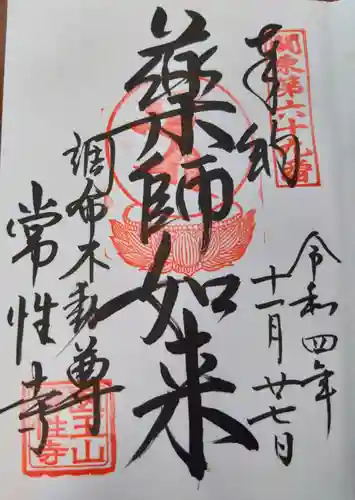 奉納
関東第六十九番
令和四年
十一月廿七日
薬師如来
調布不動尊
常性寺
医王山
常性寺